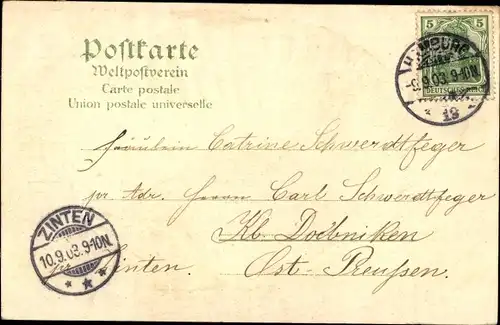 Postkarte
Weltpostverein
Carte postale
Union postale universelle
5 5
DEUTSCHES REICH
HAMBURG
-9.9.03. 9-10N.
* 19 *
Fräulein Catrine Schwerdtfeger
pr. Adr. Herrn Carl Schwerdtfeger
Kl. Döbniken
pr. Zinten. Ost-Preußen.
ZINTEN
10.9.03. 9-10N.
* * *